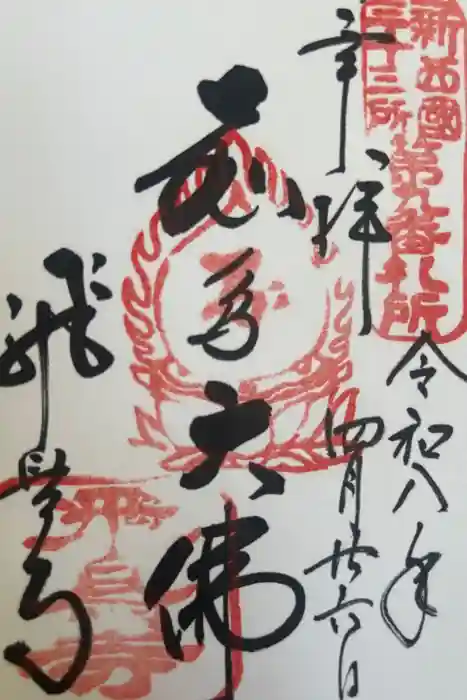 新西國
三十三所
第九番札所
令和八年
四月廿六日
奉拝
飛鳥大佛
飛鳥寺
飛鳥寺